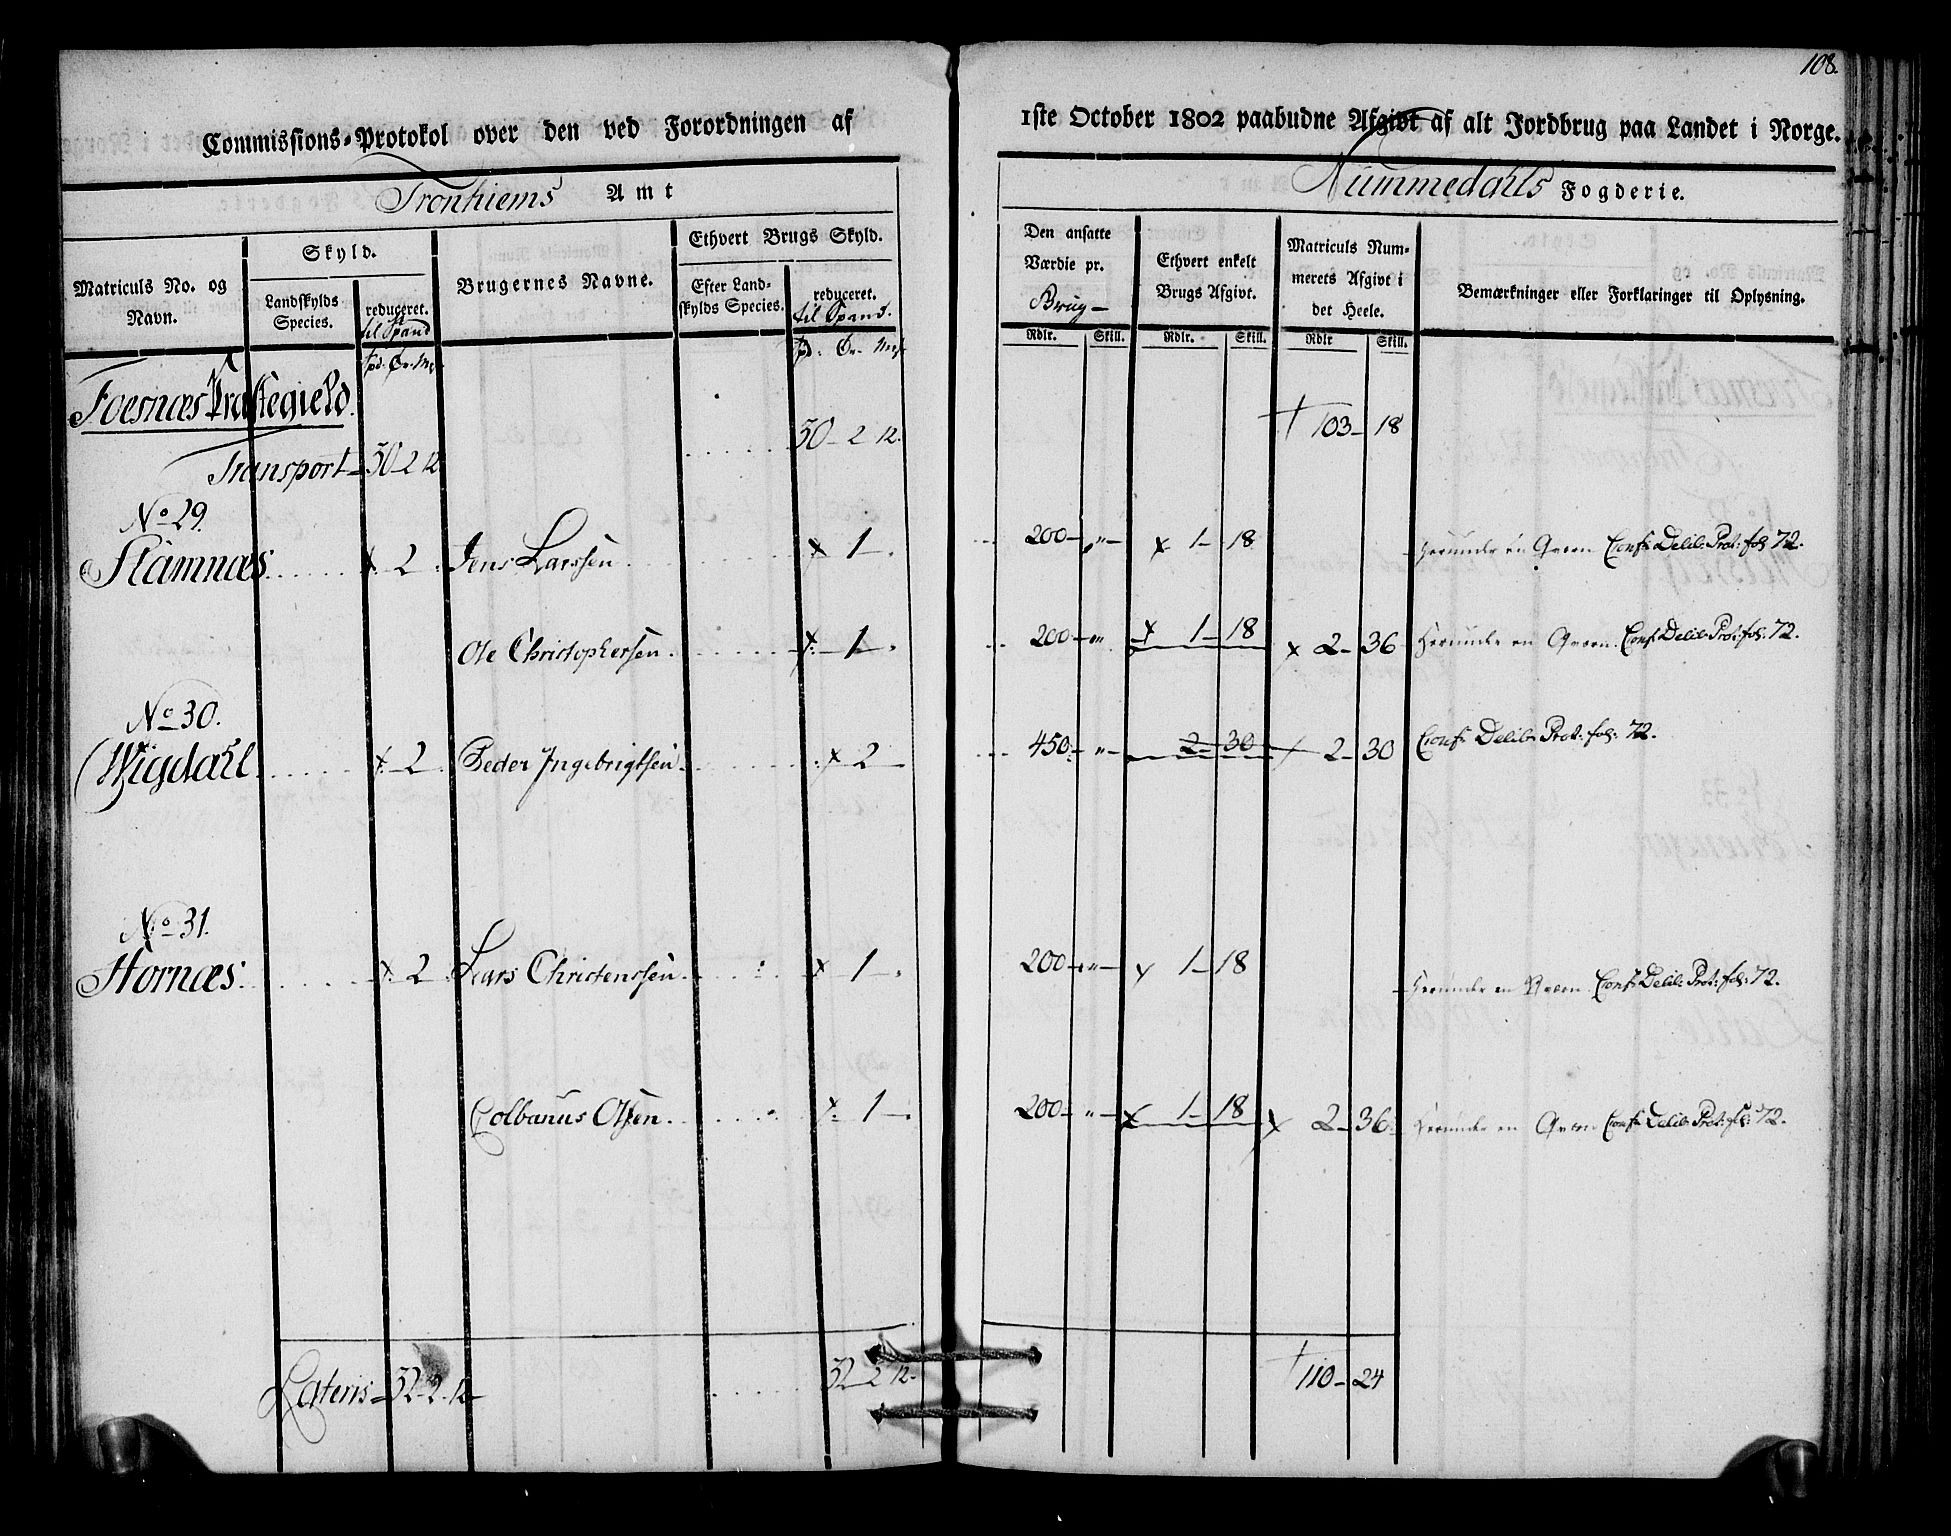 108.
Commissions-Protokol over den ved Forordningen af 1ste October 1802 paabudne Afgivt af alt Jordbrug paa Landet i Norge.
Tronhiems Amt
Nummedahls Fogderie.
Matriculs No. og Navn.
Skyld.
Landskylds Species.
reduceret. til Spand
Brugernes Navne.
Ethvert Brugs Skyld.
Efter Landskylds Species.
reduceret. til Spand.
Den ansatte Værdie pr. Brug—
Ethvert enkelt Brugs Afgivt.
Matriculs Nummerets Afgivt i det Heele.
Bemærkninger eller Forklaringer til Oplysning.
Rdlr. Skill. Rdlr. Skill. Rdlr Skill.
Foesnæs Præstegield.
Transport — 50 2 12 50 — 2 12. 103 — 18
No 29.
Stamnæs 2 Jens Larssen 1 200 — „ — 1 — 18 Herunder en Qvern Conf: Delib: Prot: fol: 72.
Ole Christophersen 1 200 — „ 1 — 18 2 — 36 Herunder en Qvern. Conf: Delib: Prot: fol: 72.
No 30.
Wigdahl 2 Peder Ingebrigtsen 2 450 „ — 2 — 30 2 — 30 Conf: Delib: Prot: fol: 72.
No 31.
Hornæs 2 Lars Christenssen 1 200 — „ — 1 — 18 Herunder en Qvern Conf: Delib: Prot: fol: 72.
Colbanus Olsen 1 200 — „ — 1 — 18 2 — 36 Herunder en Qvern Conf: Delib: Prot: fol: 72.
Lateris — 52 — 2 — 12 — 52 — 2 12 — 110 — 24